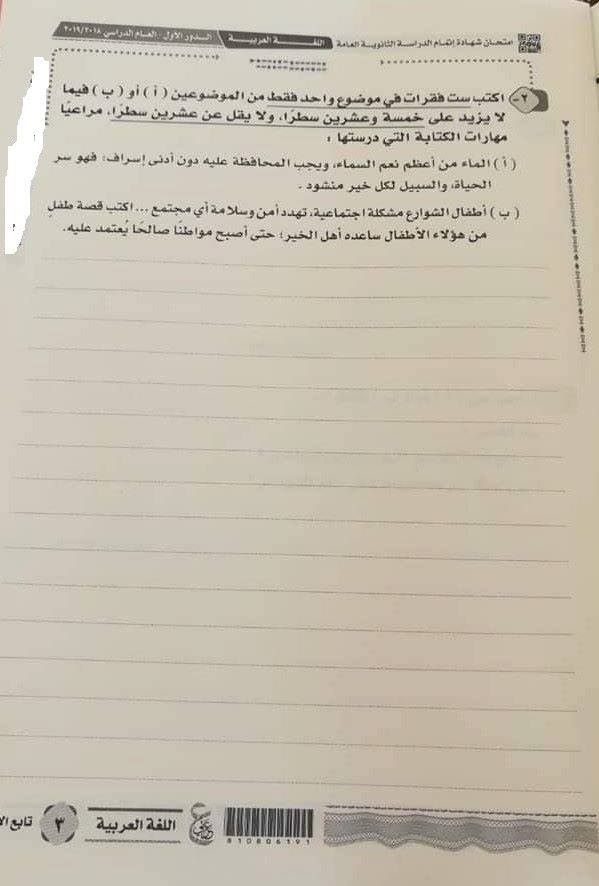 امتحان شهادة إتمام الدراسة الثانوية العامة اللغة العربية الدور الأول - العام الدراسي ٢٠١٩/٢٠١٨
٢- اكتب ست فقرات في موضوع واحد فقط من الموضوعين ( أ ) أو ( ب ) فيما
لا يزيد على خمسة وعشرين سطرًا، ولا يقل عن عشرين سطرًا، مراعيًا
مهارات الكتابة التي درستها :
( أ ) الماء من أعظم نعم السماء، ويجب المحافظة عليه دون أدنى إسراف؛ فهو سر
الحياة، والسبيل لكل خير منشود .
( ب ) أطفال الشوارع مشكلة اجتماعية، تهدد أمن وسلامة أي مجتمع ... اكتب قصة طفلٍ
من هؤلاء الأطفال ساعده أهل الخير؛ حتى أصبح مواطنًا صالحًا يُعتمد عليه.
810806191
اللغة العربية
٣
تابع